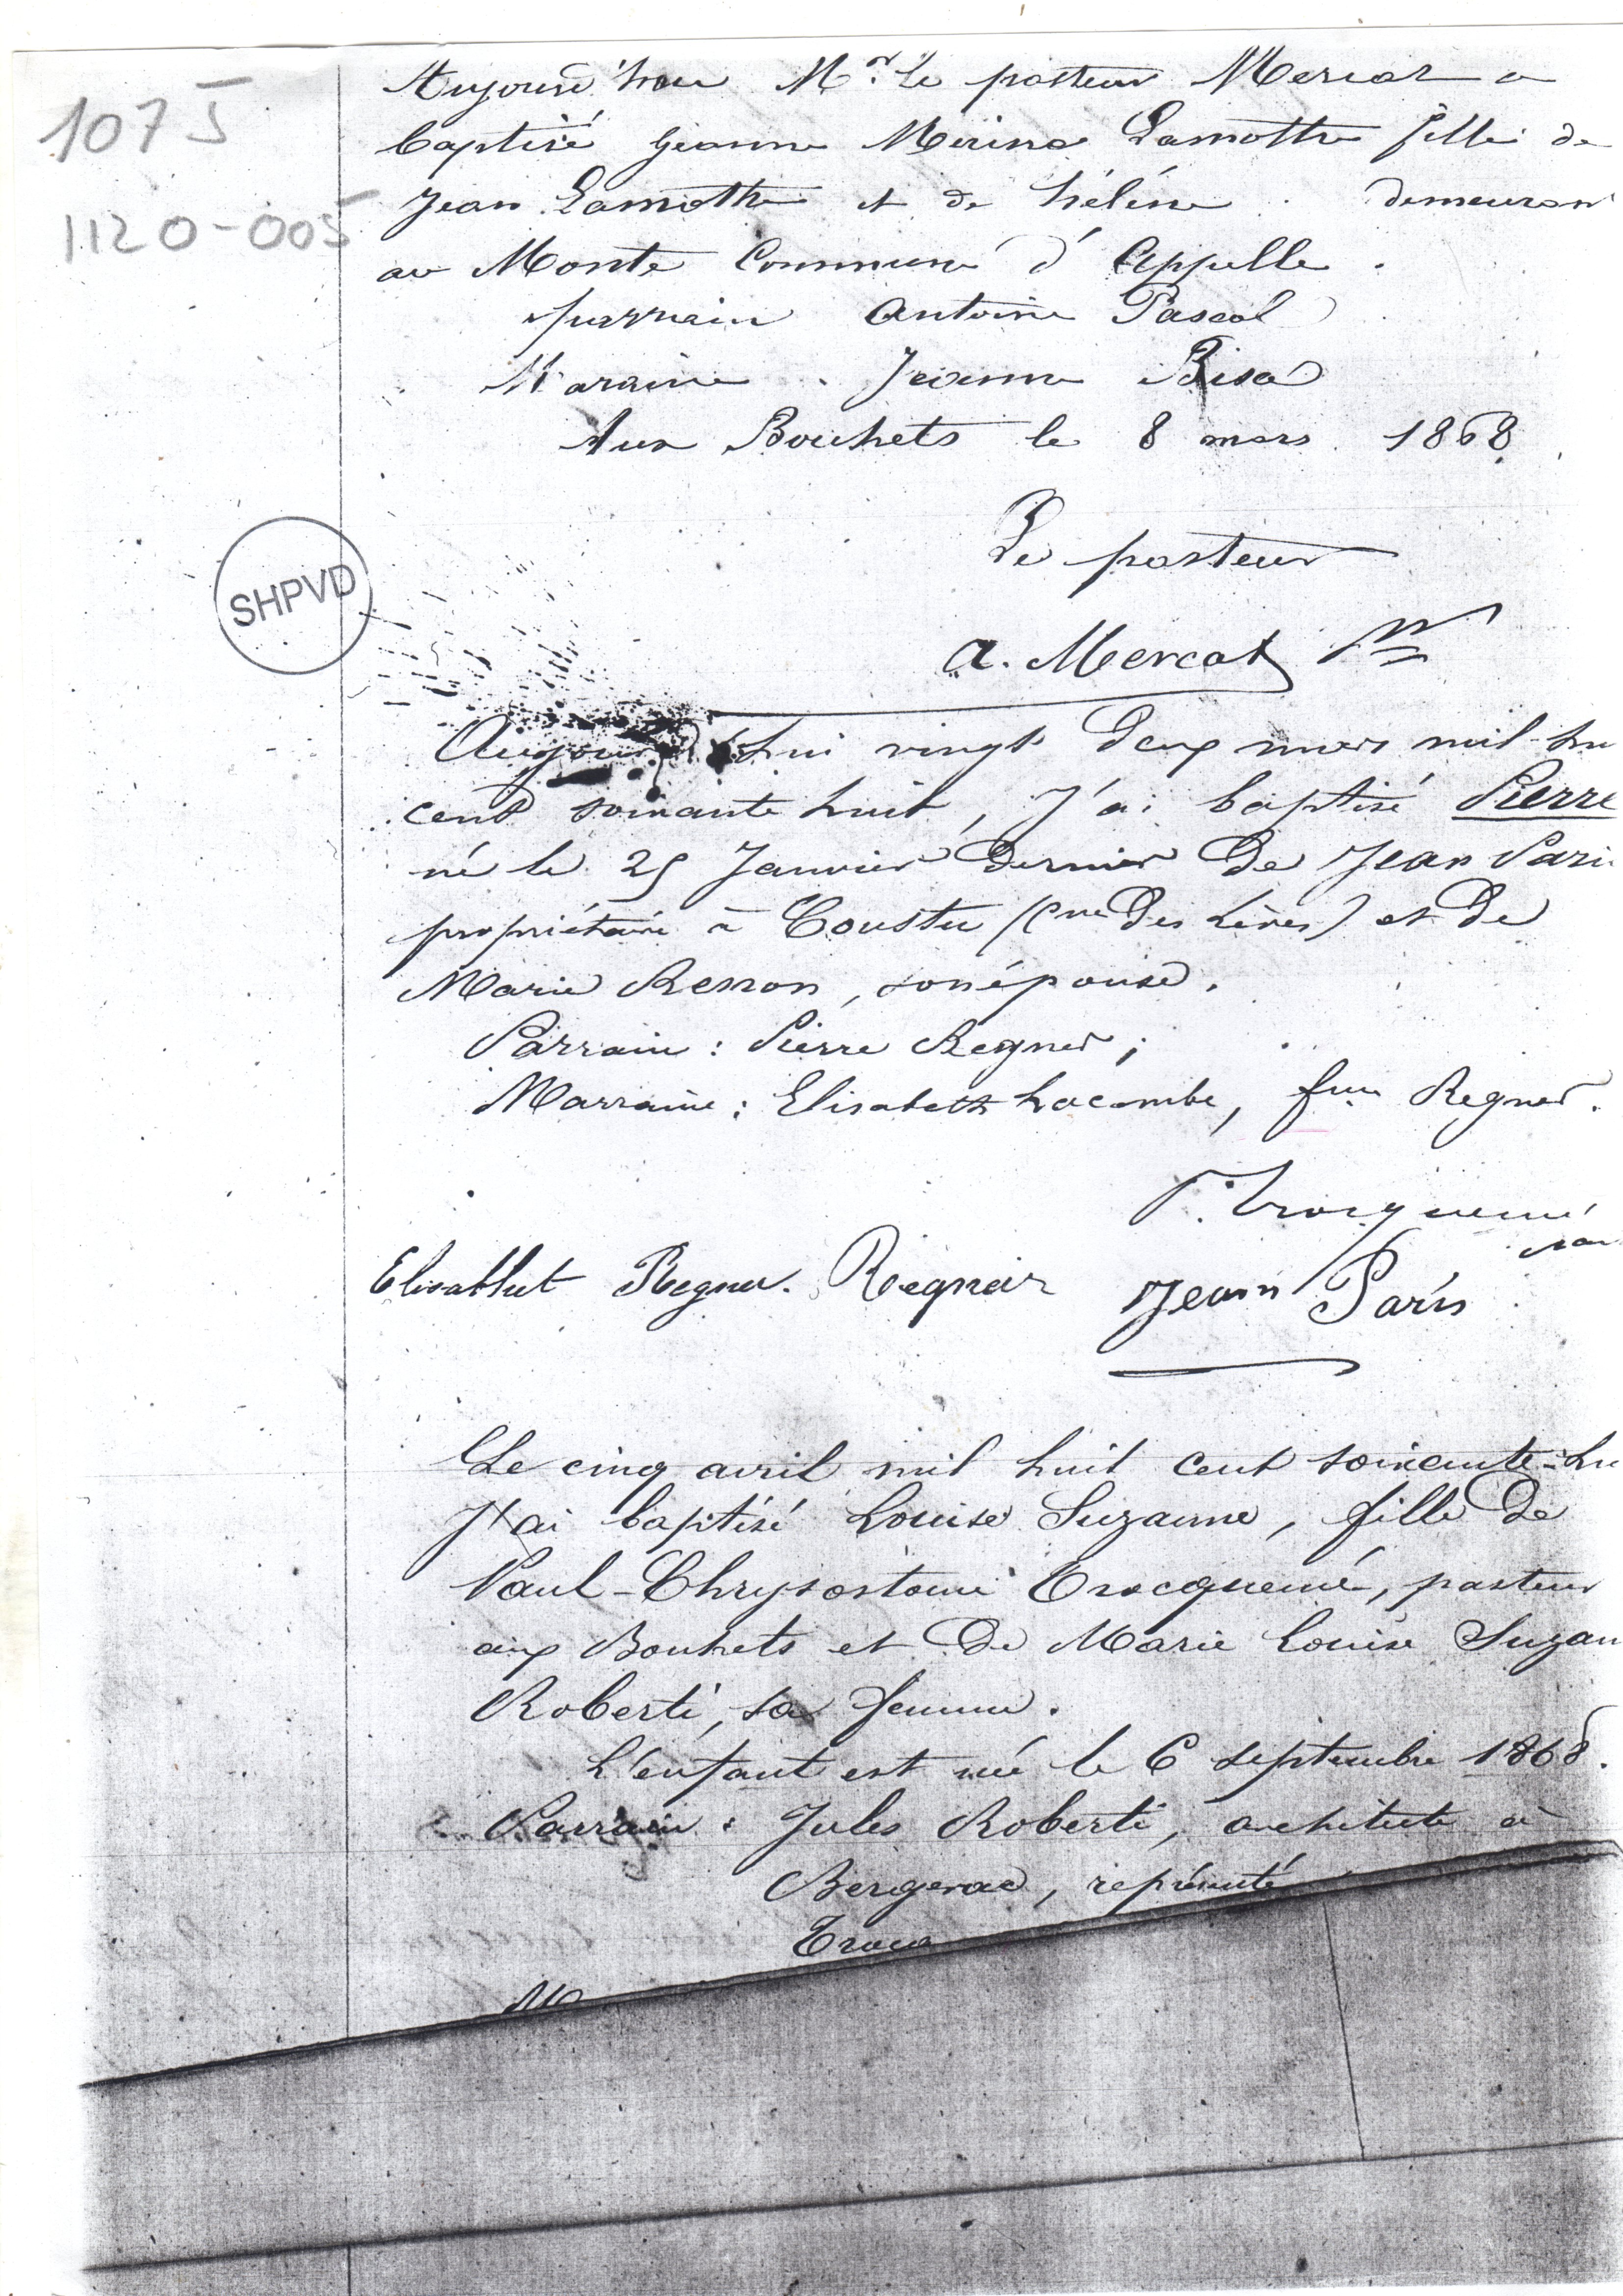 107 J
1120-005
SHPVD
Aujourd'hui Mr. Le pasteur Mercat a
baptisé Geanne Merina Lamothe fille de
Jean Lamothe et de hélène . demeuran
au Monte Commune d' Appelle .
parrain Antoine Pascal
Maraine . Jeanne Bisa
Aux Bouhets le 8 mars 1868
Le pasteur
A. Mercat
Aujourd'hui vingt deux mars mil hu
cent soixante huit, J'ai baptisé Pierre
né le 25 Janvier dernier de Jean Pari
propriétaire à Coustu (Cne des Lèves) et de
Marie Resson, son épouse.
Parrain : Pierre Regner ;
Marraine : Elisabeth Lacombe, fme Regner.
P. Trocquemé
Elisabhet Regner. Regneir Jean Paris
Le cinq avril mil huit cent soixante-hu
J'ai baptisé Louise Suzanne, fille de
Paul-Chrysostome Trocquemé, pasteur
aux Bouhets et de Marie Louise Suzan
Roberti, sa femme.
L'enfant est née le 6 septembre 1868.
Parrain : Jules Roberti, architecte à
Bergerac, représenté
Trocq
M